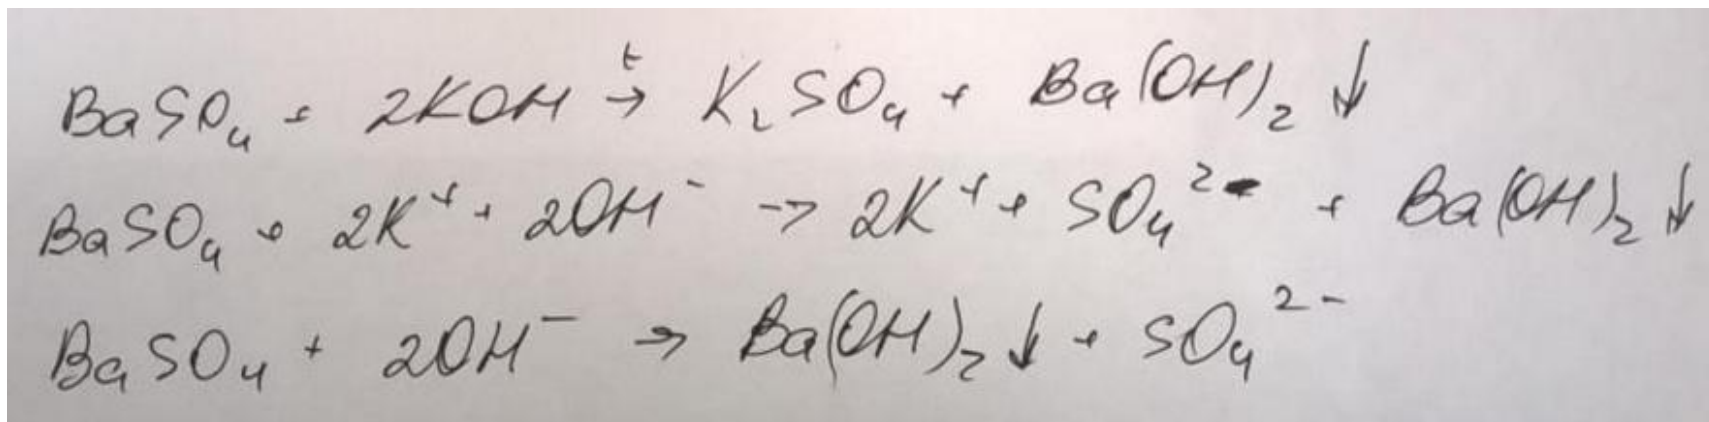 BaSO₄ + 2KOH →ᵗ K₂SO₄ + Ba(OH)₂ ↓
BaSO₄ + 2K⁺ + 2OH⁻ → 2K⁺ + SO₄²⁻ + Ba(OH)₂ ↓
BaSO₄ + 2OH⁻ → Ba(OH)₂ ↓ + SO₄²⁻